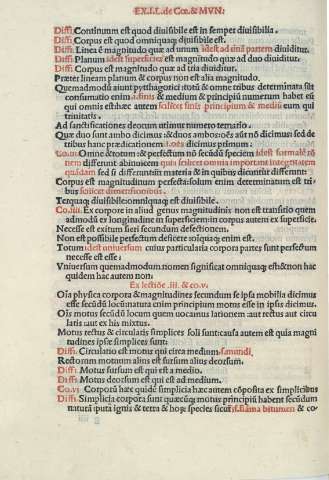 EX.I.L.de Cœ.& MVN:
Diffi. Continuum est quod diuisibile est in semper diuisibilia.
Diffi. Corpus est quod omniquaq; diuisibile est.
Diffi. Linea ē magnitudo quæ ad unum idest ad unā partem diuiditur.
Diffi. Planum idest superficies est magnitudo quæ ad duo diuiditur.
Diffi. Corpus est magnitudo quæ ad tria diuiditur.
Præter lineam planum & corpus non est alia magnitudo.
Quemadmodū aiunt pythagorici totū & omne tribus determinata sūt
consumatio enim & medium & principiū numerum habet eū
qui omnis est hæc autem principium & mediū eum qui
trinitatis.
Ad sanctificationes deorum utimur numero ternario.
Quæ duo sunt ambo dicimus & duos ambos oēs aūt nō dicimus: sed de
tribus hanc prædicationem dicimus primum.
Omne & totum & perfectum nō secūdū speciem idest formalē rō
nem differunt abinuicem quis enim omnia important integritatem
quādam sed si differūt in materia & in quibus dicuntur differunt:
Corpus est magnitudinum perfecta solum enim determinatum est tri
bus scilicet dimensionibus.
Terquaq; diuisibile omniquaq; est diuisibile.
Co.iiii. Ex corpore in aliud genus magnitudinis non est transitio quem
admodū ex longitudine in superficiem in corpus autem ex superficie.
Necesse est exitum fieri secundum defectionem.
Non est possibile perfectum deficere iqiaq; enim est.
Totum idest uniuersum cuius particularia corpora partes sunt perfectum
necesse est esse:
Vniuersum quemadmodum nomen significat omniquaq; est & non hac
quidem hac autem non:
Ex lectiōe .iii. & co.v:
Oīa physica corpora & magnitudines secundum se ipsa mobilia dicimus
esse secūdū locū natura enim principium motus esse in ipsis dicimus.
Oīs motus secūdū locum quem uocamus lationem aut rectus aut circu
latis aut ex his mixtus.
Motus rectus & circularis simplices soli sunt: causa autem est quia magni
tudines ipsæ simplices sunt:
Diffi. Circulatio est motus qui circa medium mundi.
Rectorum motuum alius est sursum alius deorsum.
Diffi. Motus sursum est qui est a medio.
Diffi. Motus deorsum est qui est ad medium.
Co.vi. Corporū hæc quidē simplicia hæc autem cōposita ex simplicibus
Diffi. Simplicia corpora sunt quæcūq; motus principiū habent secūdū
naturā puta ignis & terra & hoꝝ species sicut flāma bitumen & co